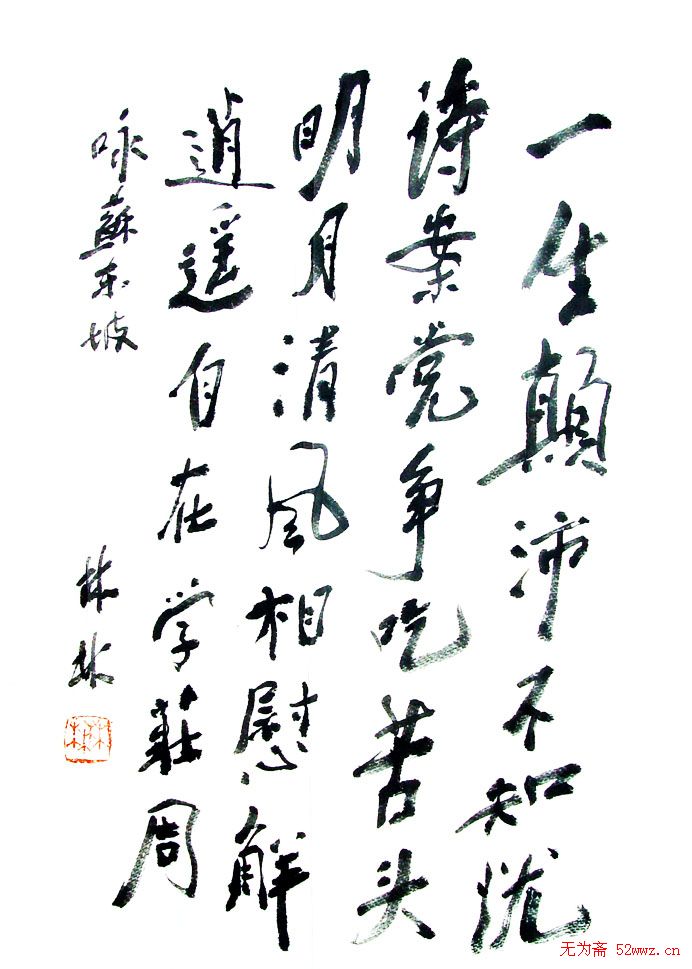 一生顛沛不知忧
诗案党争吃苦头
明月清风相慰解
逍遥自在学莊周
咏蘇东坡
林林
无为斋 52wwz.cn